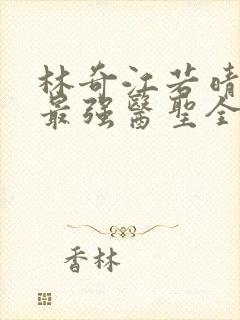 林奇江若晴
最强醫聖全
香林